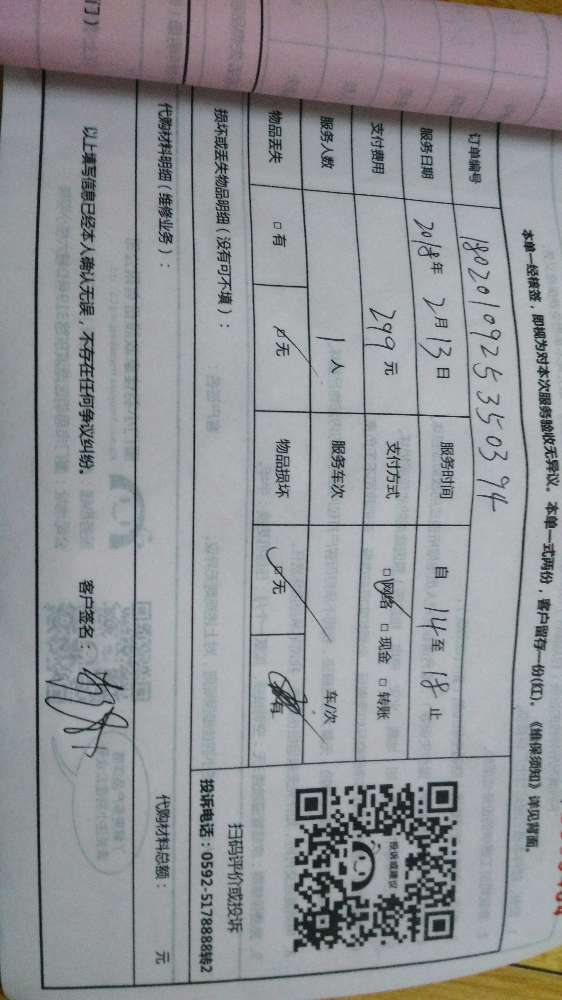 本单一经核签，即视为对本次服务验收无异议。本单一式两份，客户留存一份(红)。《维保须知》详见背面。
订单编号 18020109253503 94
服务日期 2018年 2月 13日 服务时间 自 14 至 18 止
支付费用 299 元 支付方式 □网络 □现金 □转账
服务人数 1人 服务车次 车/次
物品丢失 □有 □无 物品损坏 □无 有
投诉或建议
扫码评价或投诉
投诉电话：0592-5178888转2
损坏或丢失物品明细（没有可不填）：
代购材料明细（维修业务）： 代购材料总额： 元
以上填写信息已经本人确认无误，不存在任何争议纠纷。 客户签名：